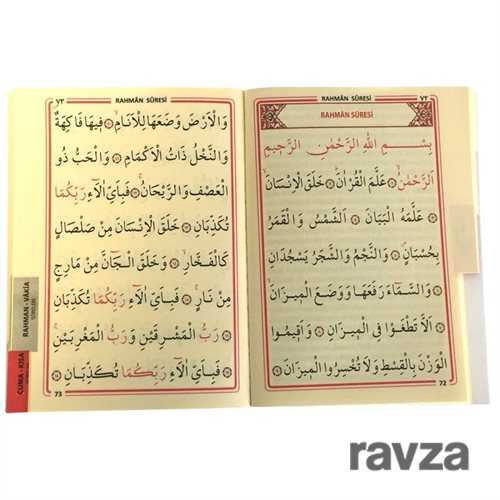 ٧٢
RAHMÂN SÛRESİ
RAHMÂN SÛRESİ
بِسْمِ اللّٰهِ الرَّحْمٰنِ الرَّحِيمِ
اَلرَّحْمٰنُ ۙ عَلَّمَ الْقُرْاٰنَ ۜ خَلَقَ الْاِنْسَانَ ۙ
عَلَّمَهُ الْبَيَانَ اَلشَّمْسُ وَالْقَمَرُ
بِحُسْبَانٍ ۖ وَالنَّجْمُ وَالشَّجَرُ يَسْجُدَانِ
وَالسَّمَٓاءَ رَفَعَهَا وَوَضَعَ الْمِيزَانَ ۙ
اَلَّا تَطْغَوْا فِي الْمِيزَانِ وَاَقِيمُوا
الْوَزْنَ بِالْقِسْطِ وَلَا تُخْسِرُوا الْمِيزَانَ
72
٧٣
RAHMÂN SÛRESİ
وَالْاَرْضَ وَضَعَهَا لِلْاَنَامِ ۙ فِيهَا فَاكِهَةٌ
وَالنَّخْلُ ذَاتُ الْاَكْمَامِ ۖ وَالْحَبُّ ذُو
الْعَصْفِ وَالرَّيْحَانُ ۚ فَبِاَيِّ اٰلَٓاءِ رَبِّكُمَا
تُكَذِّبَانِ خَلَقَ الْاِنْسَانَ مِنْ صَلْصَالٍ
كَالْفَخَّارِ ۙ وَخَلَقَ الْجَٓانَّ مِنْ مَارِجٍ
مِنْ نَارٍ ۚ فَبِاَيِّ اٰلَٓاءِ رَبِّكُمَا تُكَذِّبَانِ
رَبُّ الْمَشْرِقَيْنِ وَرَبُّ الْمَغْرِبَيْنِ ۚ
فَبِاَيِّ اٰلَٓاءِ رَبِّكُمَا تُكَذِّبَانِ
73
RAHMAN - VAKIA
CUMA - KISA
ravza